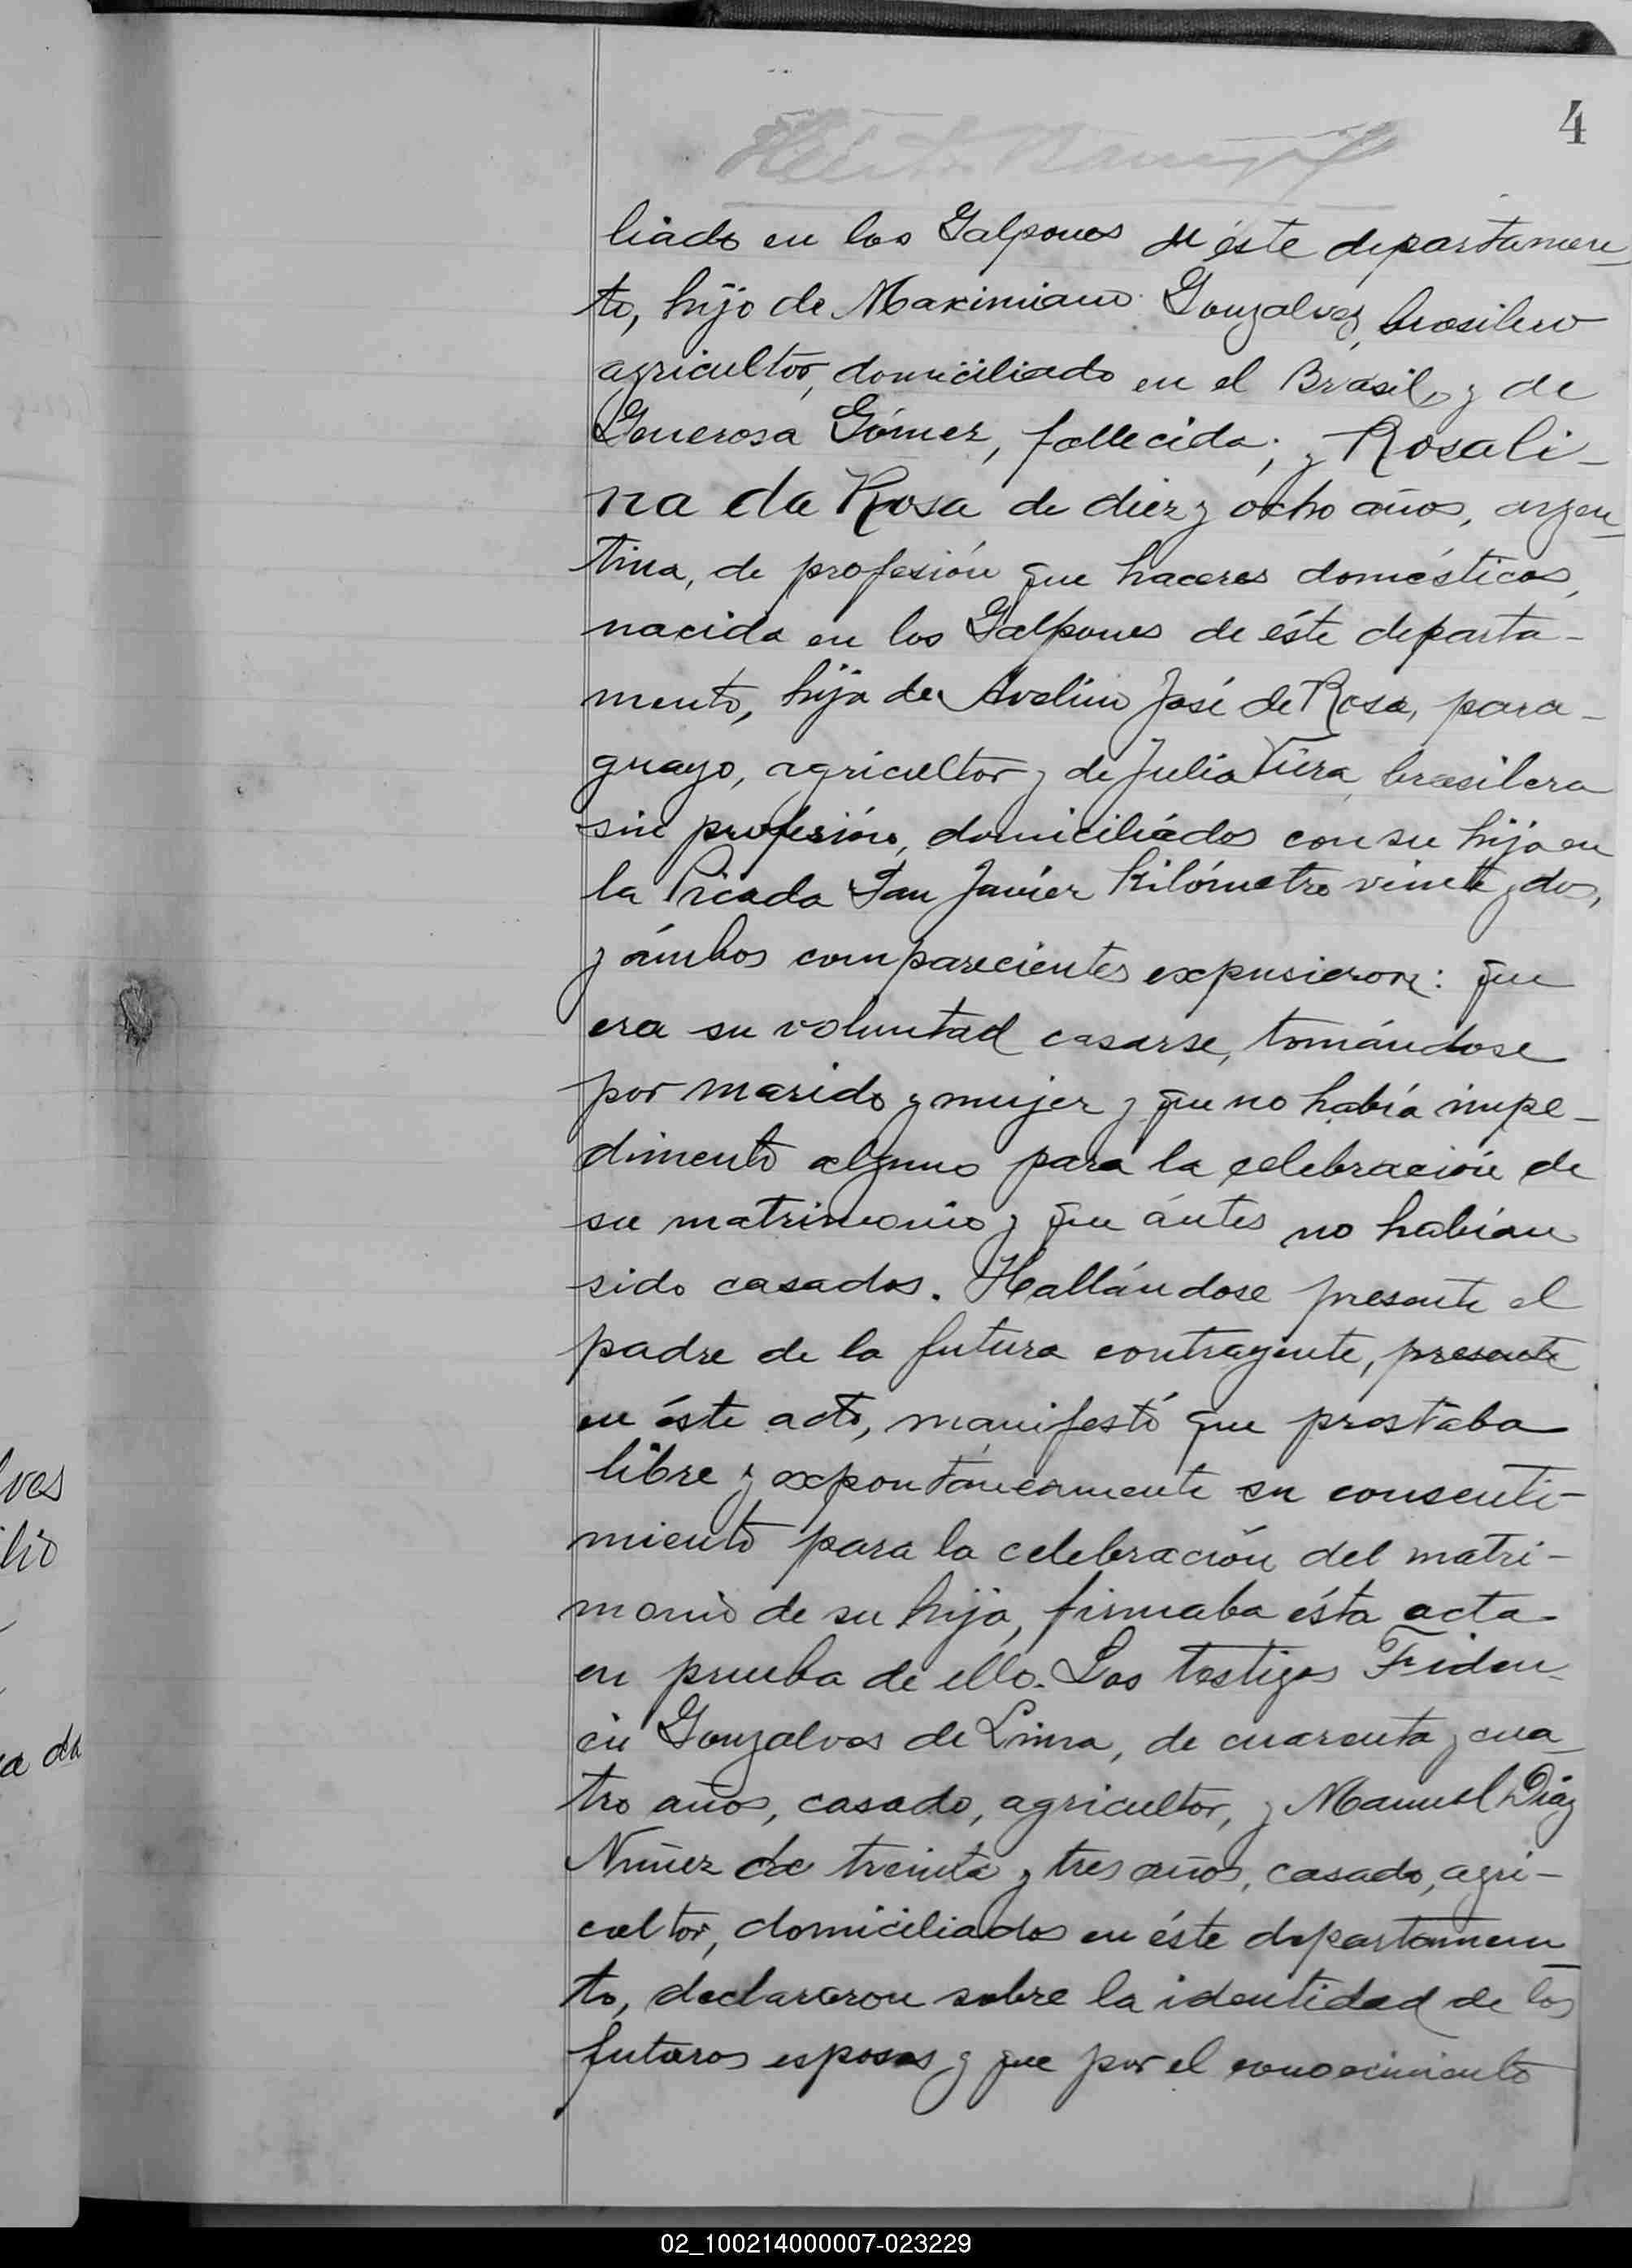 4
liado en los Galpones de éste departamen
to, hijo de Maximiano Gonzalves, brasilero
agricultor, domiciliado en el Brasil, y de
Generosa Gómez, fallecida; y Rosali-
na da Rosa de diez y ocho años, argen
tina, de profesión que haceres domésticos,
nacida en los Galpones de éste departa-
mento, hija de Avelino José de Rosa, para-
guayo, agricultor y de Julia Viera, brasilera
sin profesión, domiciliádos con su hija en
la Picada San Javier Kilómetro veinte y dos,
y ámbos comparecientes expusieron: que
era su voluntad casarse, tomándose
por marido y mujer y que no había impe-
dimento alguno para la celebración de
su matrimonio y que ántes no habían
sido casados. Hallándose presente el
padre de la futura contrayente, presente
en éste acto, manifestó que prestaba
libre y expontáneamente su consenti-
miento para la celebración del matri-
monio de su hija, firmaba ésta acta
en prueba de ello. Los testigos Fiden
cio Gonzalves de Lima, de cuarenta y cua
tro años, casado, agricultor, y Manuel Diaz
Nuñez de treinta y tres años, casado, agri-
cultor, domiciliados en éste departamen
to, declararon sobre la identidad de los
futuros esposos y que por el conocimiento
ves
lio
a da
02_100214000007-023229